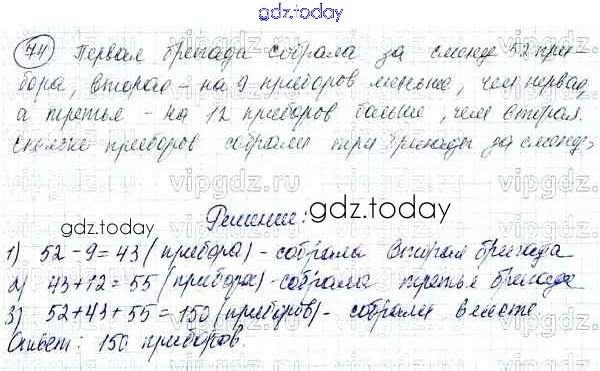 gdz.today
74 Первая бригада собрала за смену 52 при-
бора, вторая - на 9 приборов меньше, чем первая,
а третья - на 12 приборов больше, чем вторая.
Сколько приборов собрали три бригады за смену?
Решение:
gdz.today
1) 52 - 9 = 43 (прибора) - собрала вторая бригада
2) 43 + 12 = 55 (прибора) - собрала третья бригада
3) 52 + 43 + 55 = 150 (приборов) - собрали вместе
Ответ: 150 приборов.
gdz.today